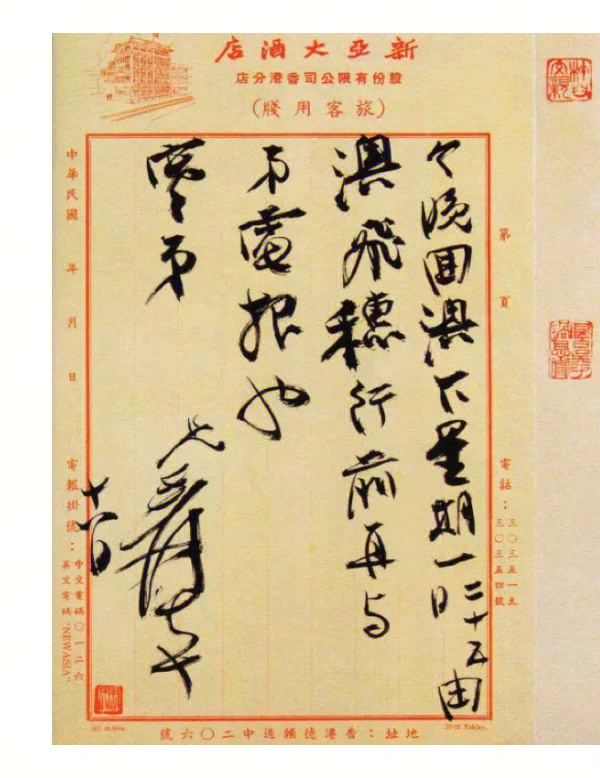 新亞大酒店
股份有限公司香港分店
(旅客用牋)
第 頁
電話：三〇三五一至
三〇三五四號
今晚回澳下星期一二十五日由
澳飛穗行前再与
弟電報也
弟
兄爰
中華民國 年 月 日
電報掛號：中文電碼〇一二六
英文電碼"NEWASIA"
地址：香港德輔道中二〇六號